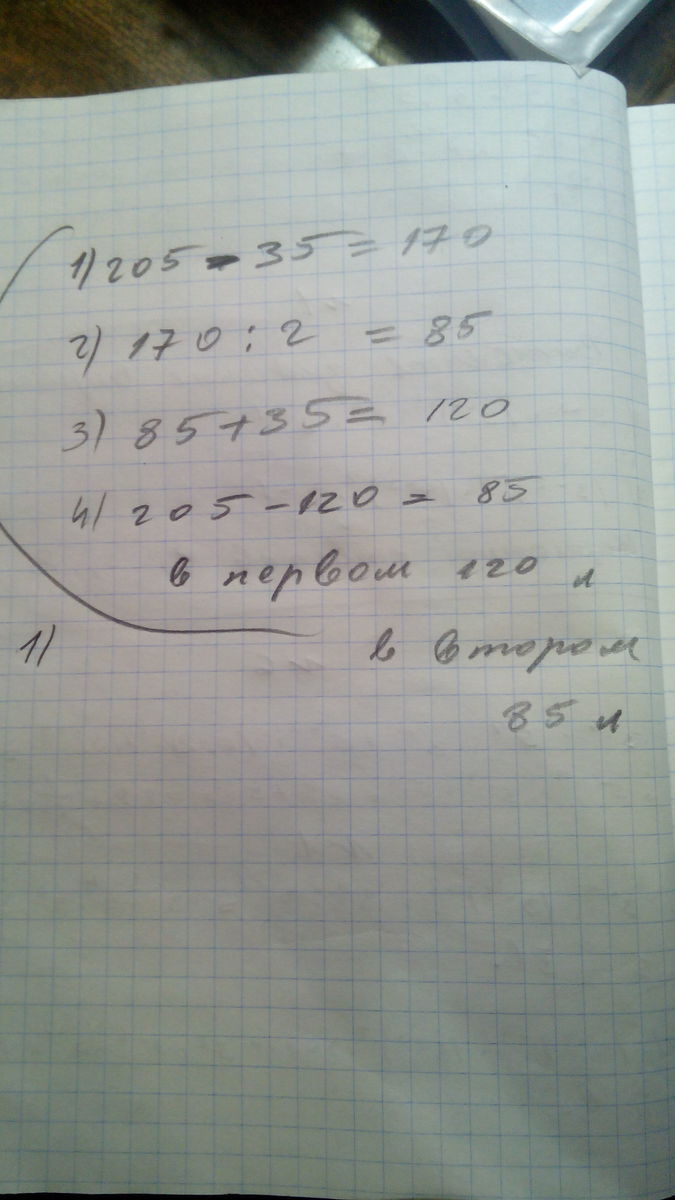 1) 205 - 35 = 170
2) 170 : 2 = 85
3) 85 + 35 = 120
4) 205 - 120 = 85
в первом 120 л
1)
в втором
85 л